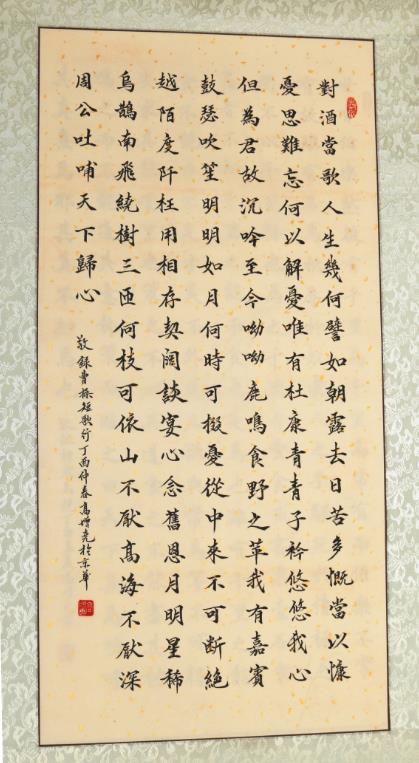 對酒當歌人生幾何譬如朝露去日苦多慨當以慷
憂思難忘何以解憂唯有杜康青青子衿悠悠我心
但為君故沉吟至今呦呦鹿鳴食野之苹我有嘉賓
鼓瑟吹笙明明如月何時可掇憂從中來不可斷絕
越陌度阡枉用相存契闊談宴心念舊恩月明星稀
烏鵲南飛繞樹三匝何枝可依山不厭高海不厭深
周公吐哺天下歸心
敬錄曹操短歌行丁酉仲春高增於京華